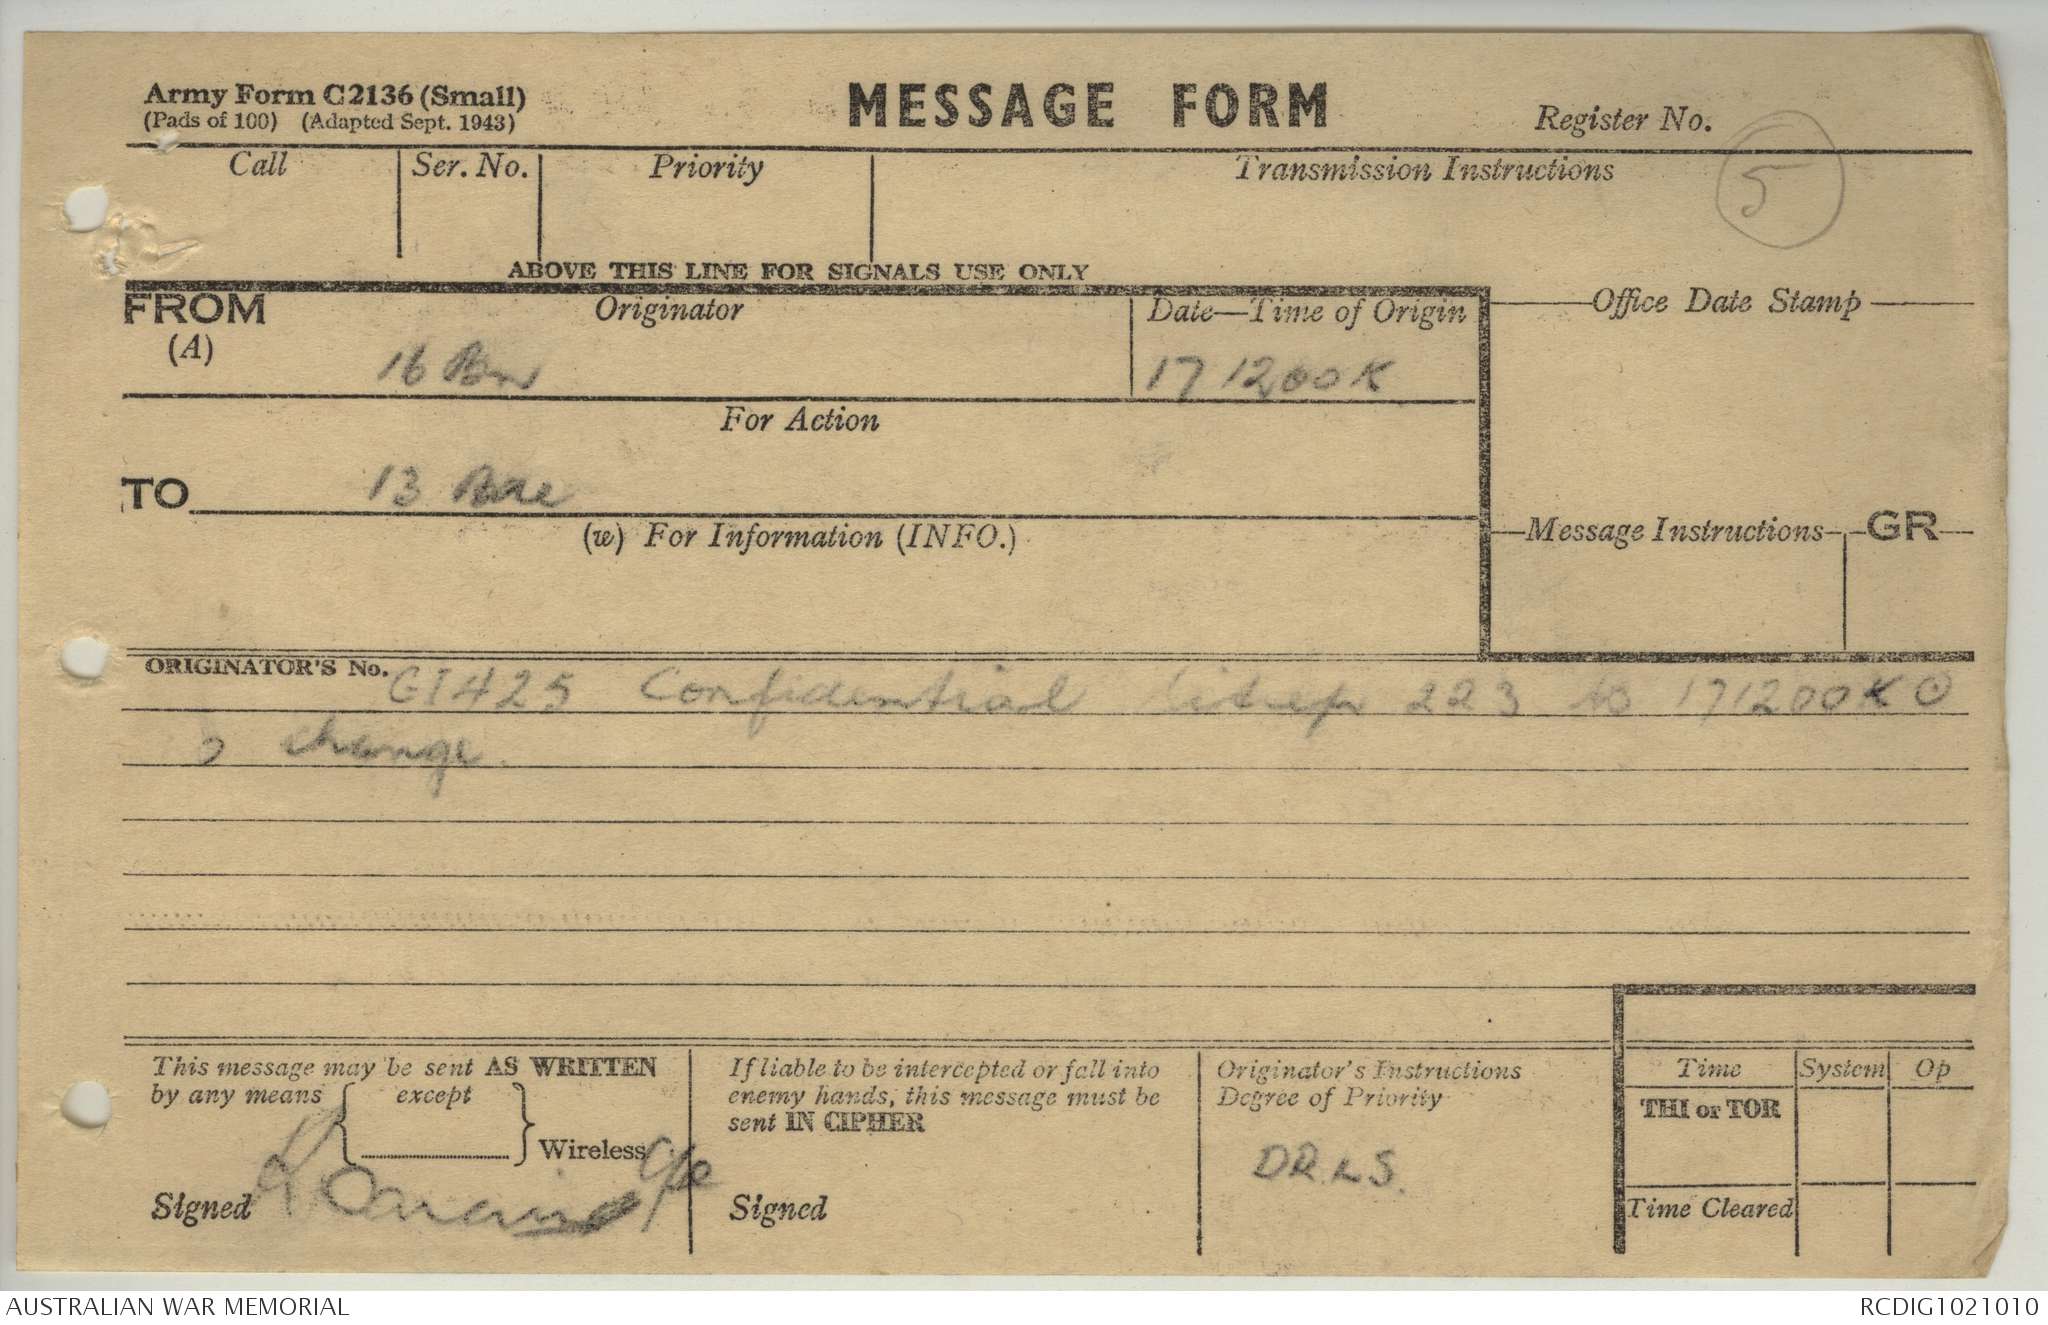 Army Form C2136 (Small)
(Pads of 100) (Adapted Sept. 1943)
MESSAGE FORM
Register No.
5
Call
Ser. No.
Priority
Transmission Instructions
ABOVE THIS LINE FOR SIGNALS USE ONLY
FROM
(A)
Originator
16 Bn
Date—Time of Origin
171200K
Office Date Stamp
For Action
TO
13 Bde
(w) For Information (INFO.)
Message Instructions
GR
ORIGINATOR'S No. GI425 Confidential Sitrep 223 to 171200K
change.
This message may be sent AS WRITTEN
by any means except
Wireless
Signed
Cpl
If liable to be intercepted or fall into
enemy hands, this message must be
sent IN CIPHER
Signed
Originator's Instructions
Degree of Priority
DRLS.
Time
System
Op
THI or TOR
Time Cleared
AUSTRALIAN WAR MEMORIAL
RCDIG1021010